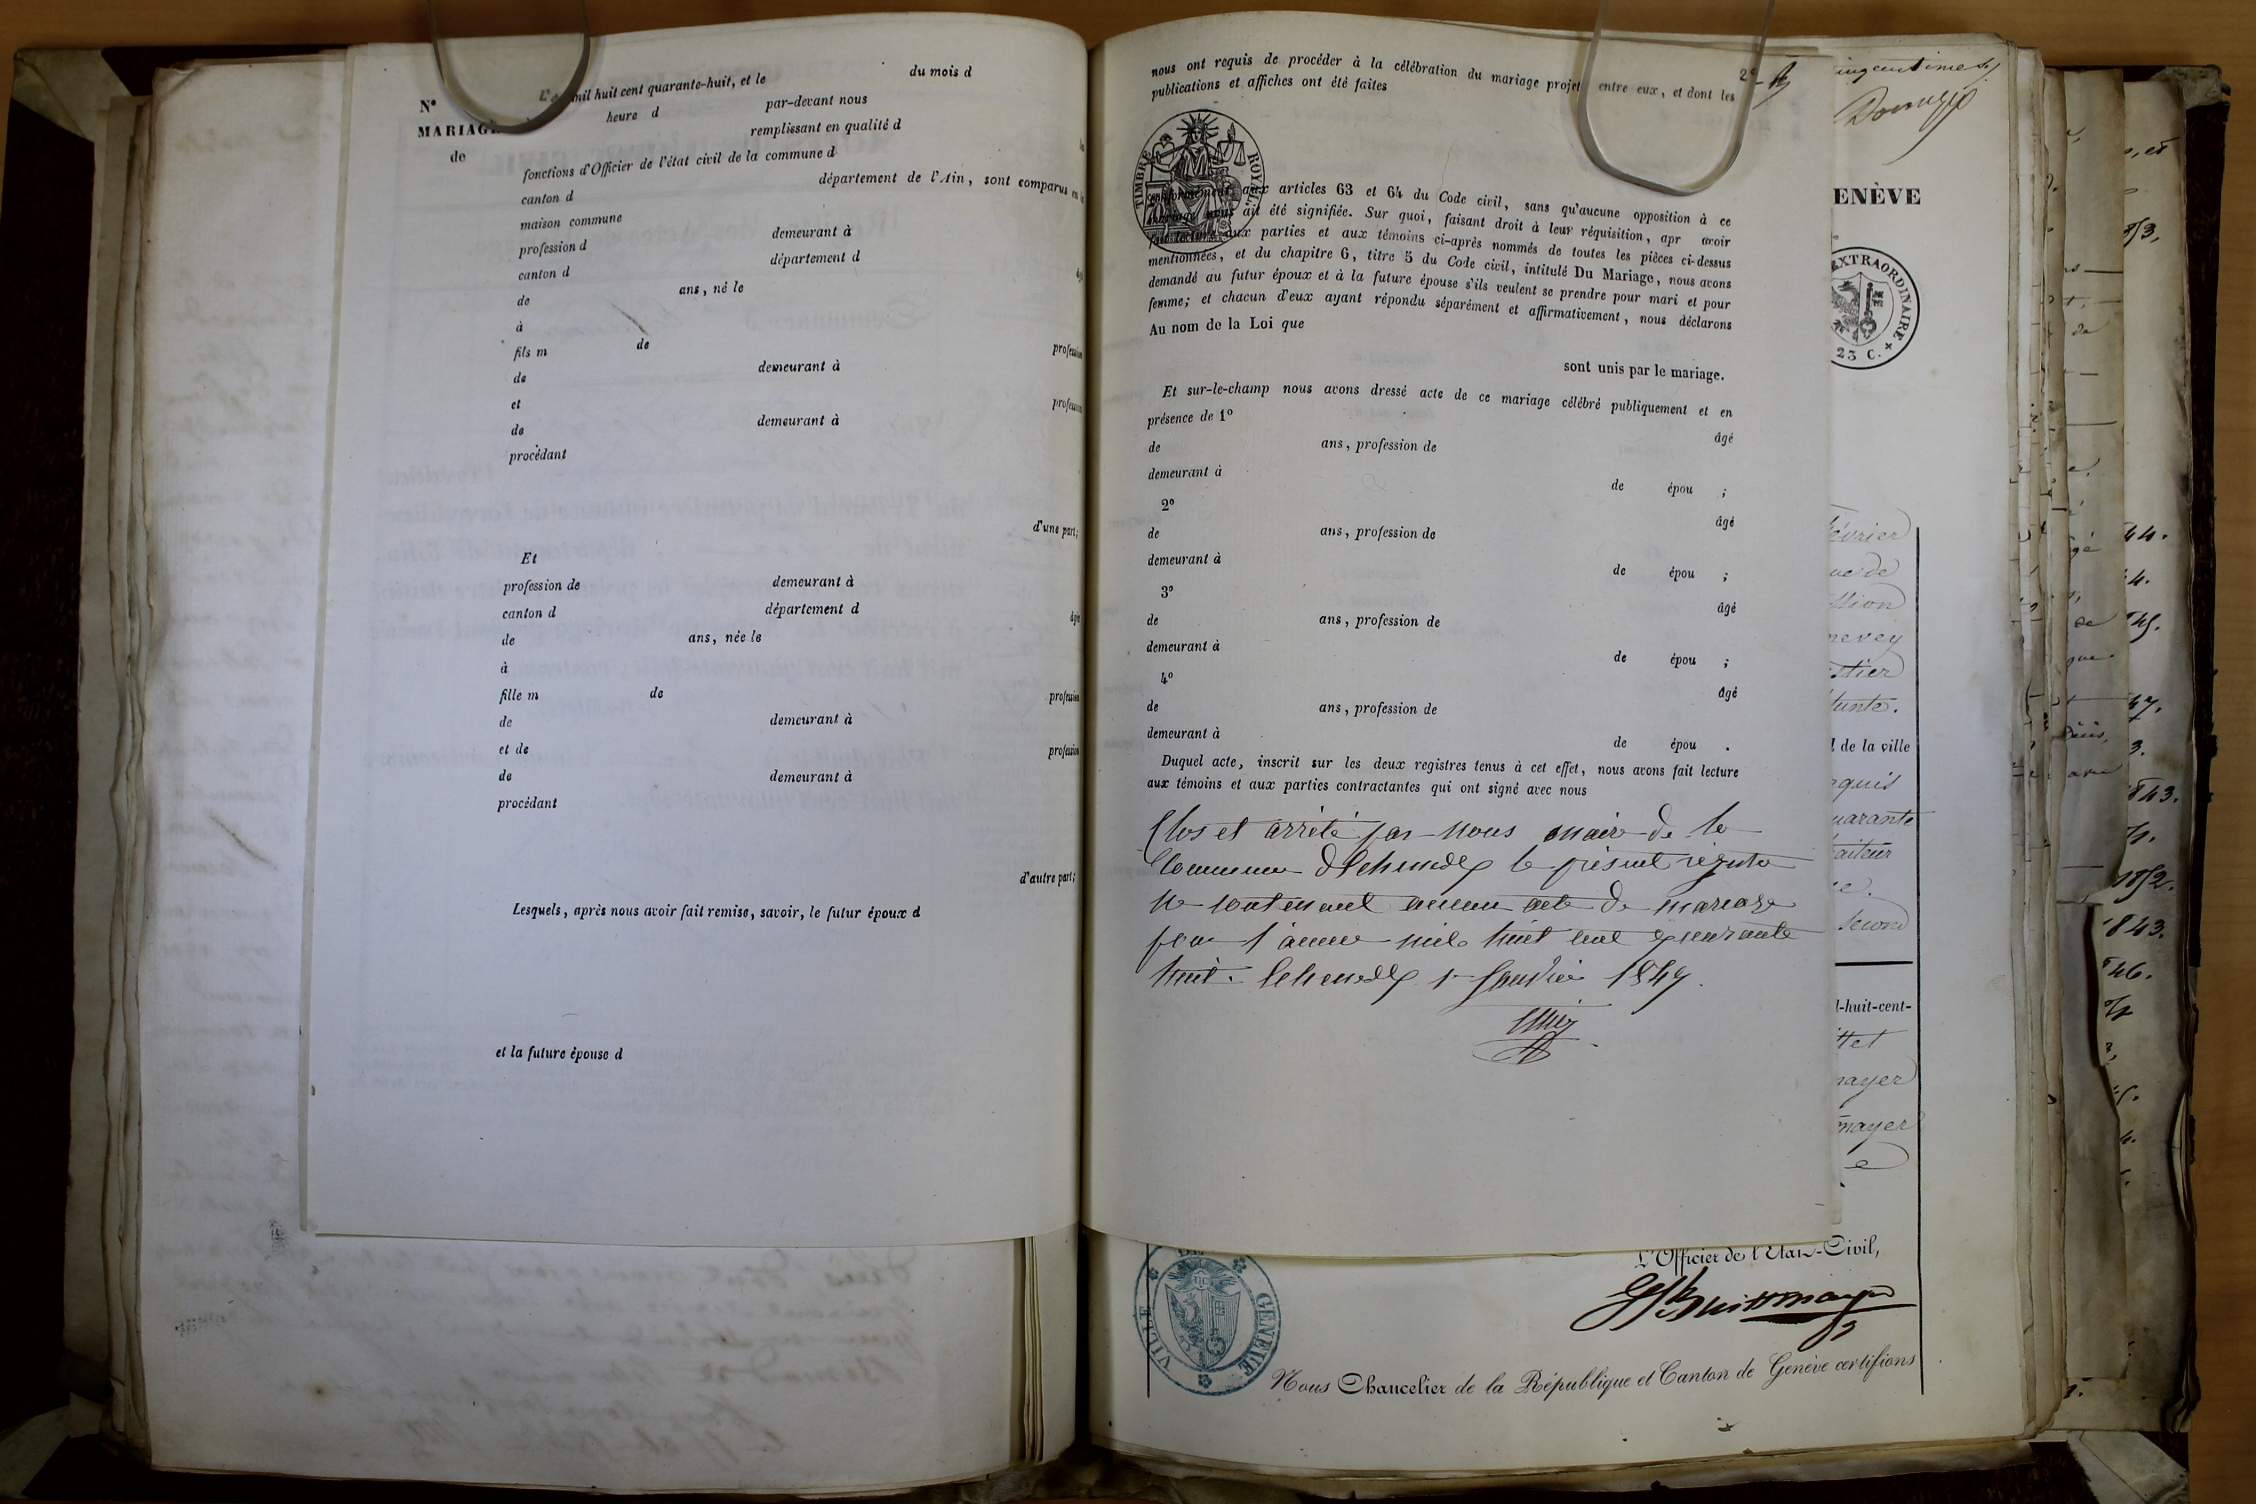 N°
MARIAGE
de
mil huit cent quarante-huit, et le du mois d
heure d par-devant nous
remplissant en qualité d
fonctions d'Officier de l'état civil de la commune d
canton d département de l'Ain, sont comparus
maison commune
profession d demeurant à
canton d département d
de ans, né le
à
fils m de profession
de demeurant à
et profession
de demeurant à
procédant
d'une part;
Et
profession de demeurant à
canton d département d
de ans, née le
à
fille m de profession
de demeurant à
et de profession
de demeurant à
procédant
d'autre part;
Lesquels, après nous avoir fait remise, savoir, le futur époux d
et la future épouse d
nous ont requis de procéder à la célébration du mariage projet entre eux, et dont les
publications et affiches ont été faites
TIMBRE ROYAL
conformément aux articles 63 et 64 du Code civil, sans qu'aucune opposition à ce
mariage nous ait été signifiée. Sur quoi, faisant droit à leur réquisition, apr avoir
fait lecture aux parties et aux témoins ci-après nommés de toutes les pièces ci-dessus
mentionnées, et du chapitre 6, titre 5 du Code civil, intitulé Du Mariage, nous avons
demandé au futur époux et à la future épouse s'ils veulent se prendre pour mari et pour
femme; et chacun d'eux ayant répondu séparément et affirmativement, nous déclarons
Au nom de la Loi que
sont unis par le mariage.
Et sur-le-champ nous avons dressé acte de ce mariage célébré publiquement et en
présence de 1°
âgé
de ans, profession de
demeurant à de épou ;
2° âgé
de ans, profession de
demeurant à de épou ;
3° âgé
de ans, profession de
demeurant à de épou ;
4° âgé
de ans, profession de
demeurant à de épou .
Duquel acte, inscrit sur les deux registres tenus à cet effet, nous avons fait lecture
aux témoins et aux parties contractantes qui ont signé avec nous
Clos et arrêté par nous maire de la
Commune d'Echenevex le présent registre
ne contenant aucun acte de mariage
pour l'année mile huit cent quarante
huit. Echenevex 1er Janvier 1849.
ENÈVE
EXTRAORDINAIRE
23 C.
février
nevey
l de la ville
quis
uarante
second
l-huit-cent-
ttet
mayer
L'Officier de l'Etat-Civil,
VILLE DE GENEVE
Nous Chancelier de la République et Canton de Genève certifions